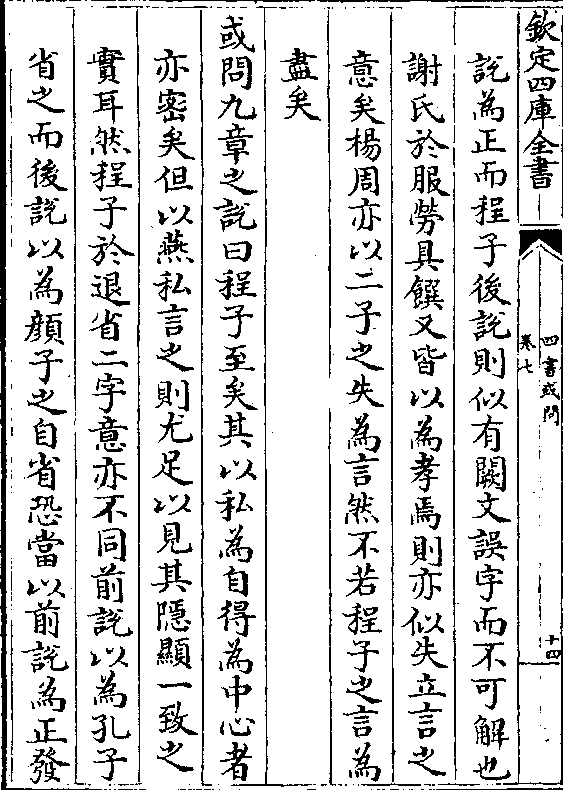 欽定四庫全書
四書或問
卷七
十四
說為正而程子後說則似有闕文誤字而不可解也
謝氏於服勞具饌又皆以為孝焉則亦似失立言之
意矣楊周亦以二子之失為言然不若程子之言為
盡矣
或問九章之說曰程子至矣其以私為自得為中心者
亦密矣但以燕私言之則尤足以見其隱顯一致之
實耳然程子於退省二字意亦不同前說以為孔子
省之而後說以為顔子之自省恐當以前說為正發